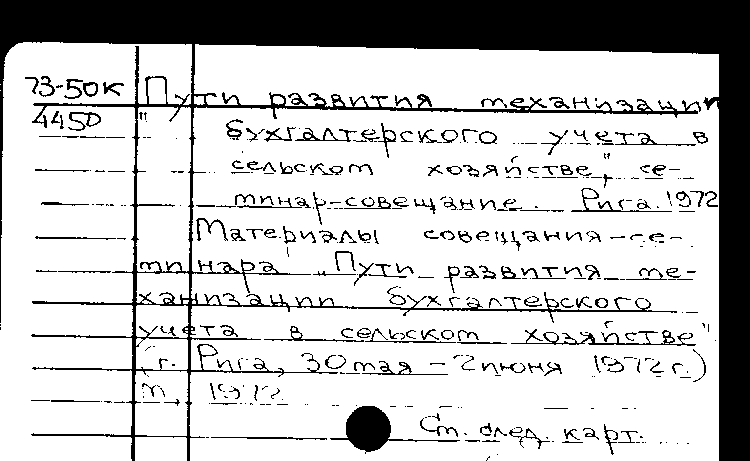 73-50к "Пути развития механизации
4450 бухгалтерского учета в
сельском хозяйстве", се-
минар-совещание. Рига. 1972
Материалы совещания-се-
минара „Пути развития ме-
ханизации бухгалтерского
учета в сельском хозяйстве"
(г. Рига, 30 мая – 2 июня 1972 г.)
М., 1972
См. след. карт.